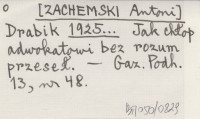 o [ZACHEMSKI Antoni]
Drabik 1925... Jak chłop
adwokatowi bez rozum
przeseł. — Gaz. Podh.
13, nr 48.